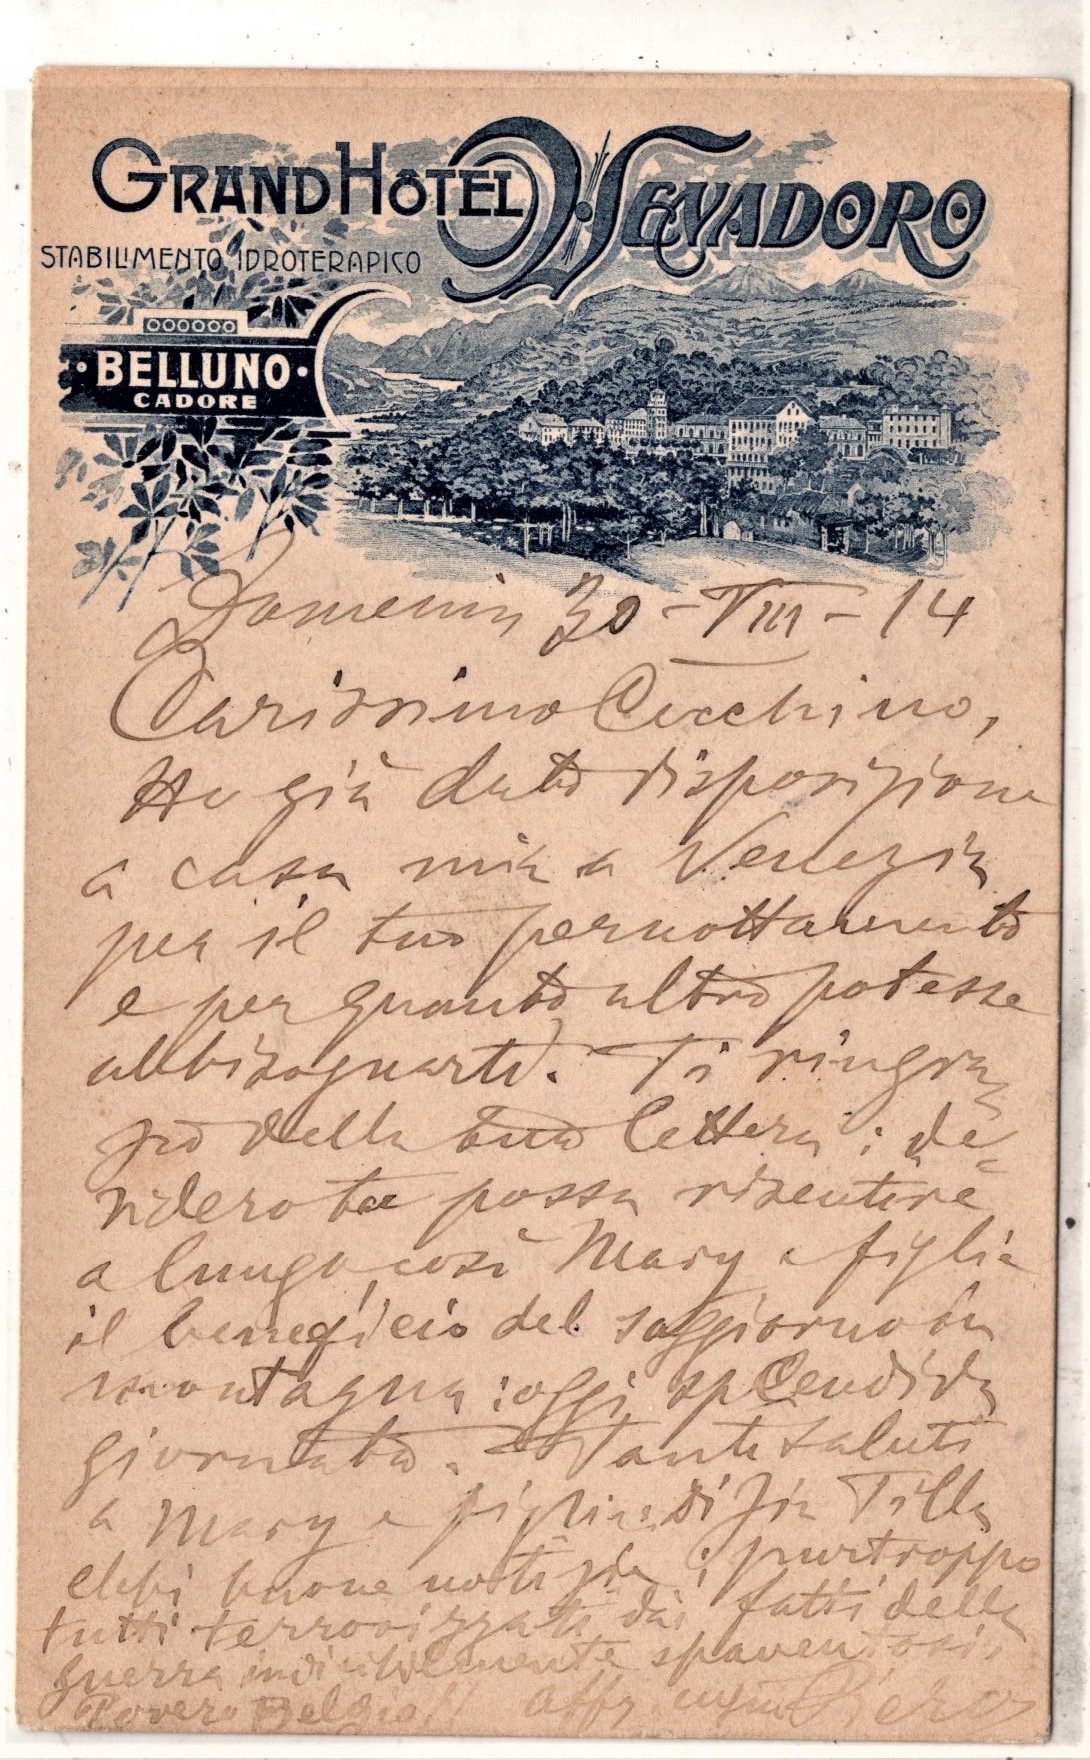 GRAND HÔTEL VENADORO
STABILIMENTO IDROTERAPICO
BELLUNO
CADORE
30-VIII-14
Carissimo Cecchino,
Ho già dato disposizione
a casa mia a Venezia
per il tuo pernottamento
e per quanto altro potesse
abbisognarti. Ti ringra
zio della tua lettera; de=
sidero te possa risentire
a lungo, così Mary e figlie
il beneficio del soggiorno in
montagna: oggi splendida
giornata. Tanti saluti
a Mary e figlie: di Zia Tilla
ebbi buone notizie; purtroppo
tutti terrorizzati dai fatti della
guerra indicibilmente spaventosi,
Povero Belgio!! affz cugino Piero